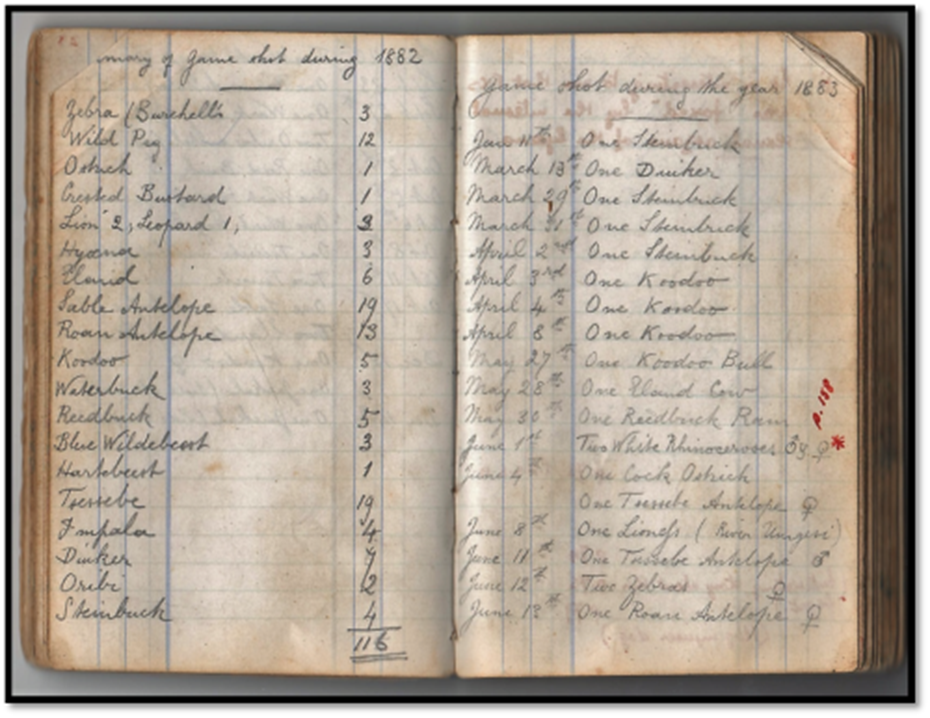 mary of Game shot during 1882
Zebra (Burchell's 3
Wild Pig 12
Ostrich 1
Crested Bustard 1
Lion 2, Leopard 1, 3
Hyæna 3
Eland 6
Sable Antelope 19
Roan Antelope 13
Koodoo 5
Waterbuck 3
Reedbuck 5
Blue Wildebeest 3
Hartebeest 1
Tsessebe 19
Impala 4
Duiker
Oribi 2
Steinbuck 4
116
Game shot during the year 1883
11th One Steinbuck
March 13th One Duiker
March 29th One Steinbuck
March 31st One Steinbuck
April 2nd One Steinbuck
April 3rd One Koodoo
April 4th One Koodoo
April 8th One Koodoo
May 27th One Koodoo Bull
May 28th One Eland Cow
May 30th One Reedbuck Ram
p. 158
June 1st Two White Rhinoceroses ♂ & ♀ *
June 4th One Cock Ostrich
One Tsessebe Antelope ♀
June 8th One Lioness (River Umgesi)
June 11th One Tsessebe Antelope ♂
June 12th Two Zebras ♀
June 13th One Roan Antelope ♀